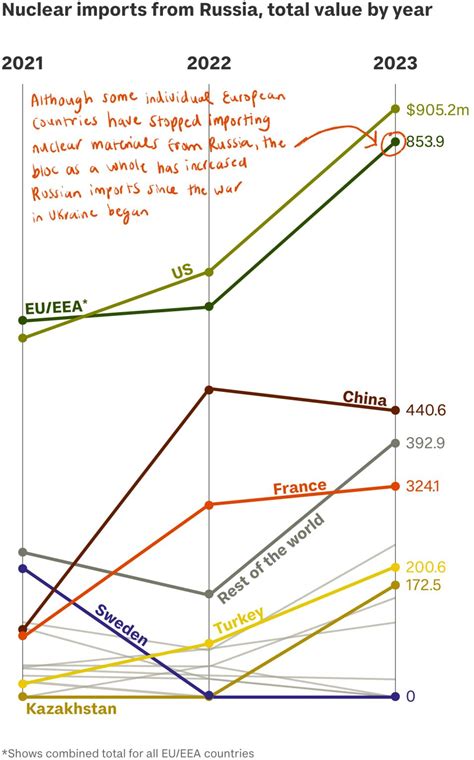 Nuclear imports from Russia, total value by year
2021 2022 2023
Although some individual European
countries have stopped importing
nuclear materials from Russia, the
bloc as a whole has increased
Russian imports since the war
in Ukraine began
$905.2m
853.9
US
EU/EEA*
China
440.6
392.9
France
324.1
Rest of the world
200.6
172.5
Sweden
Turkey
0
Kazakhstan
*Shows combined total for all EU/EEA countries